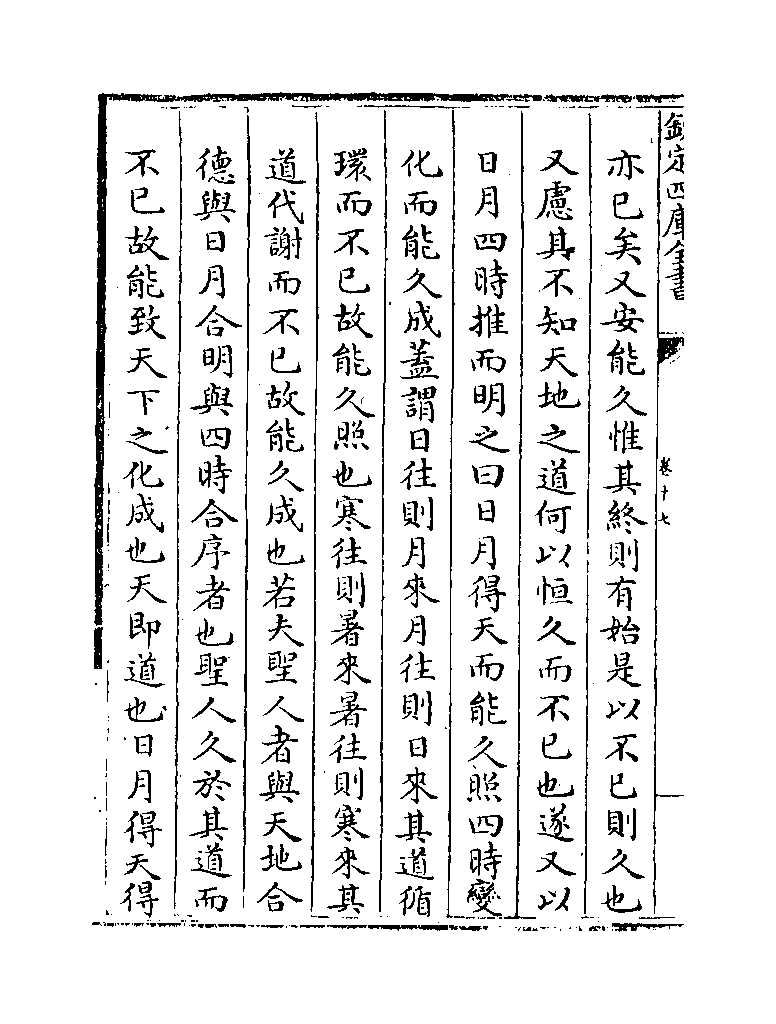 欽定四庫全書
卷十七
亦已矣又安能久惟其終則有始是以不已則久也
又慮其不知天地之道何以恒久而不已也遂又以
日月四時推而明之曰日月得天而能久照四時變
化而能久成蓋謂日往則月來月往則日來其道循
環而不已故能久照也寒往則暑來暑往則寒來其
道代謝而不已故能久成也若夫聖人者與天地合
德與日月合明與四時合序者也聖人久於其道而
不已故能致天下之化成也天即道也日月得天得